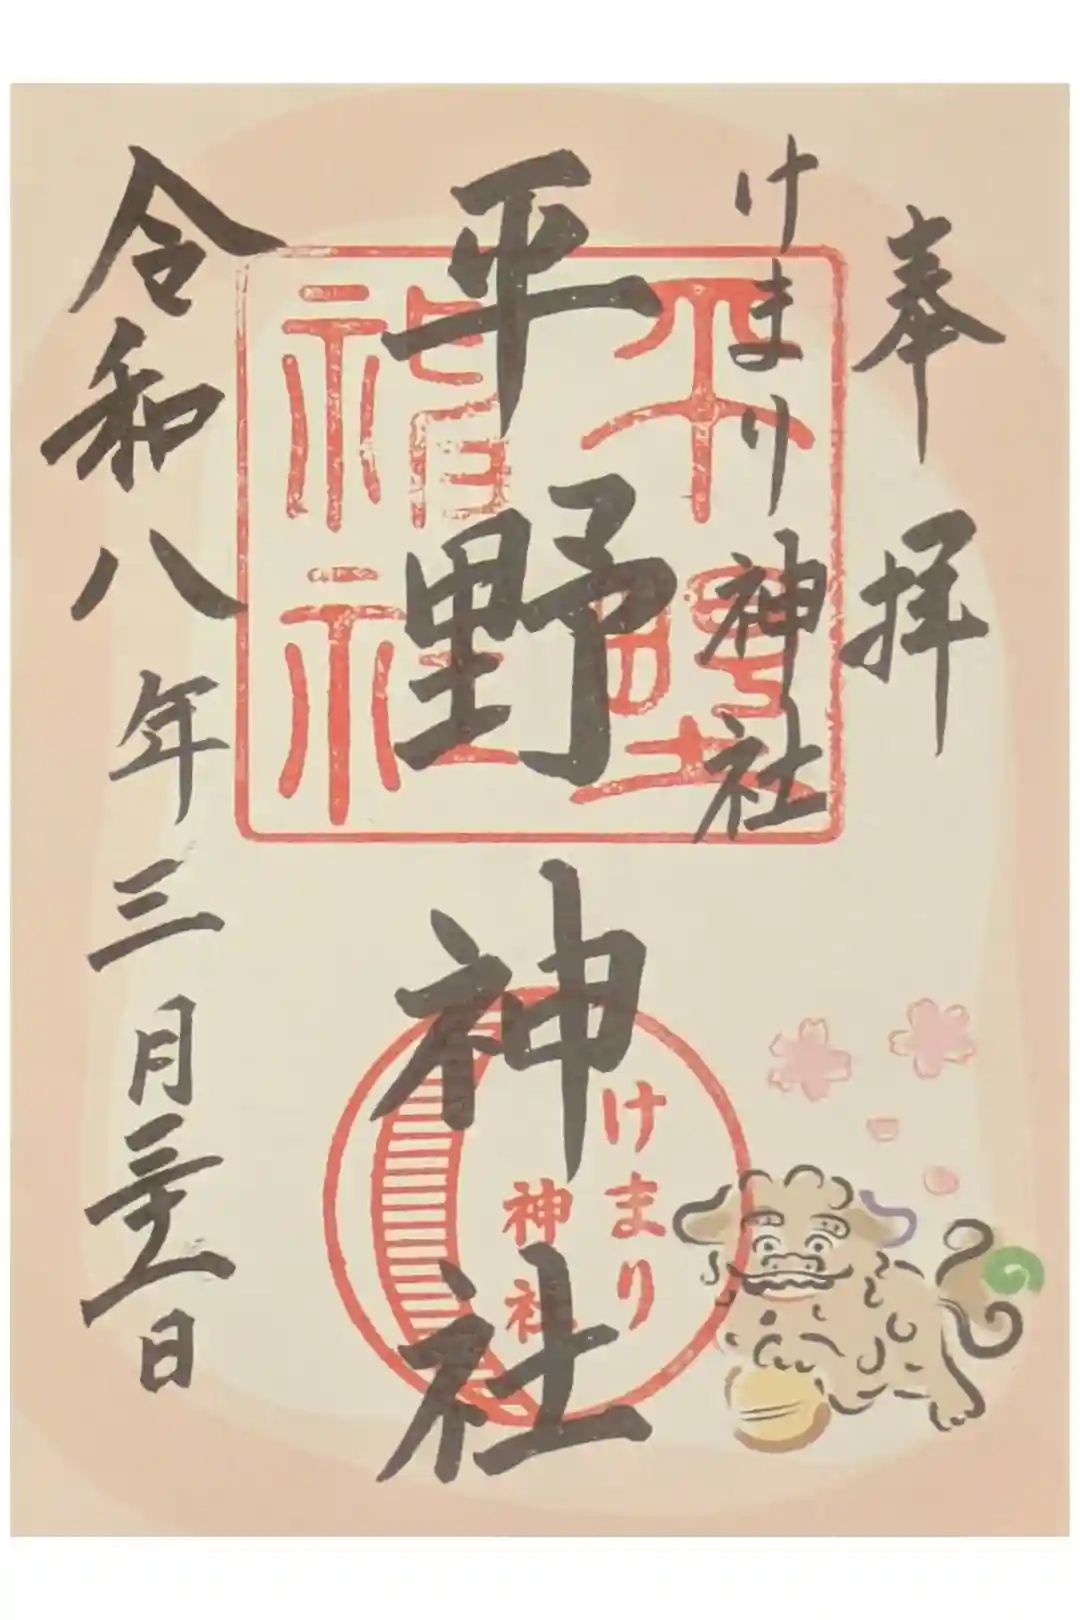 奉拝
けまり神社
平野神社
令和八年三月三十一日
平野
神社
けまり
神社